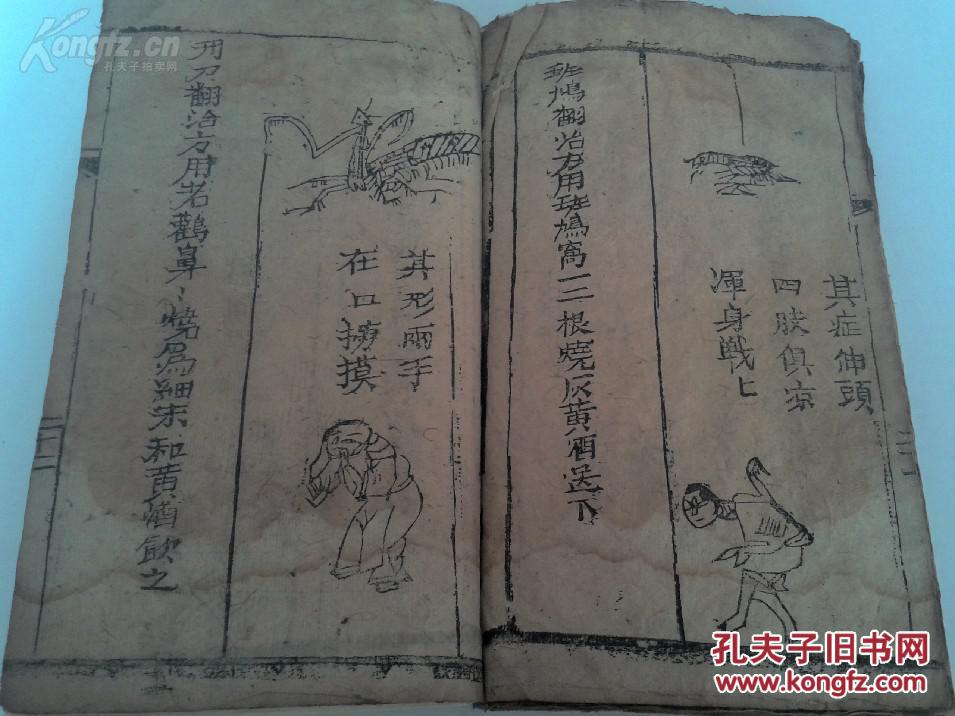 其症伸頭
四肢俱凉
渾身戰上
班鳩翻治方用班鳩窩一二根燒灰黄酒送下
其形兩手
在口摸
翻治方用老鸛鼻〻燒為細末和黄酒飲之
Kongfz.cn
孔夫子拍卖网
孔夫子旧书网
www.kongfz.com